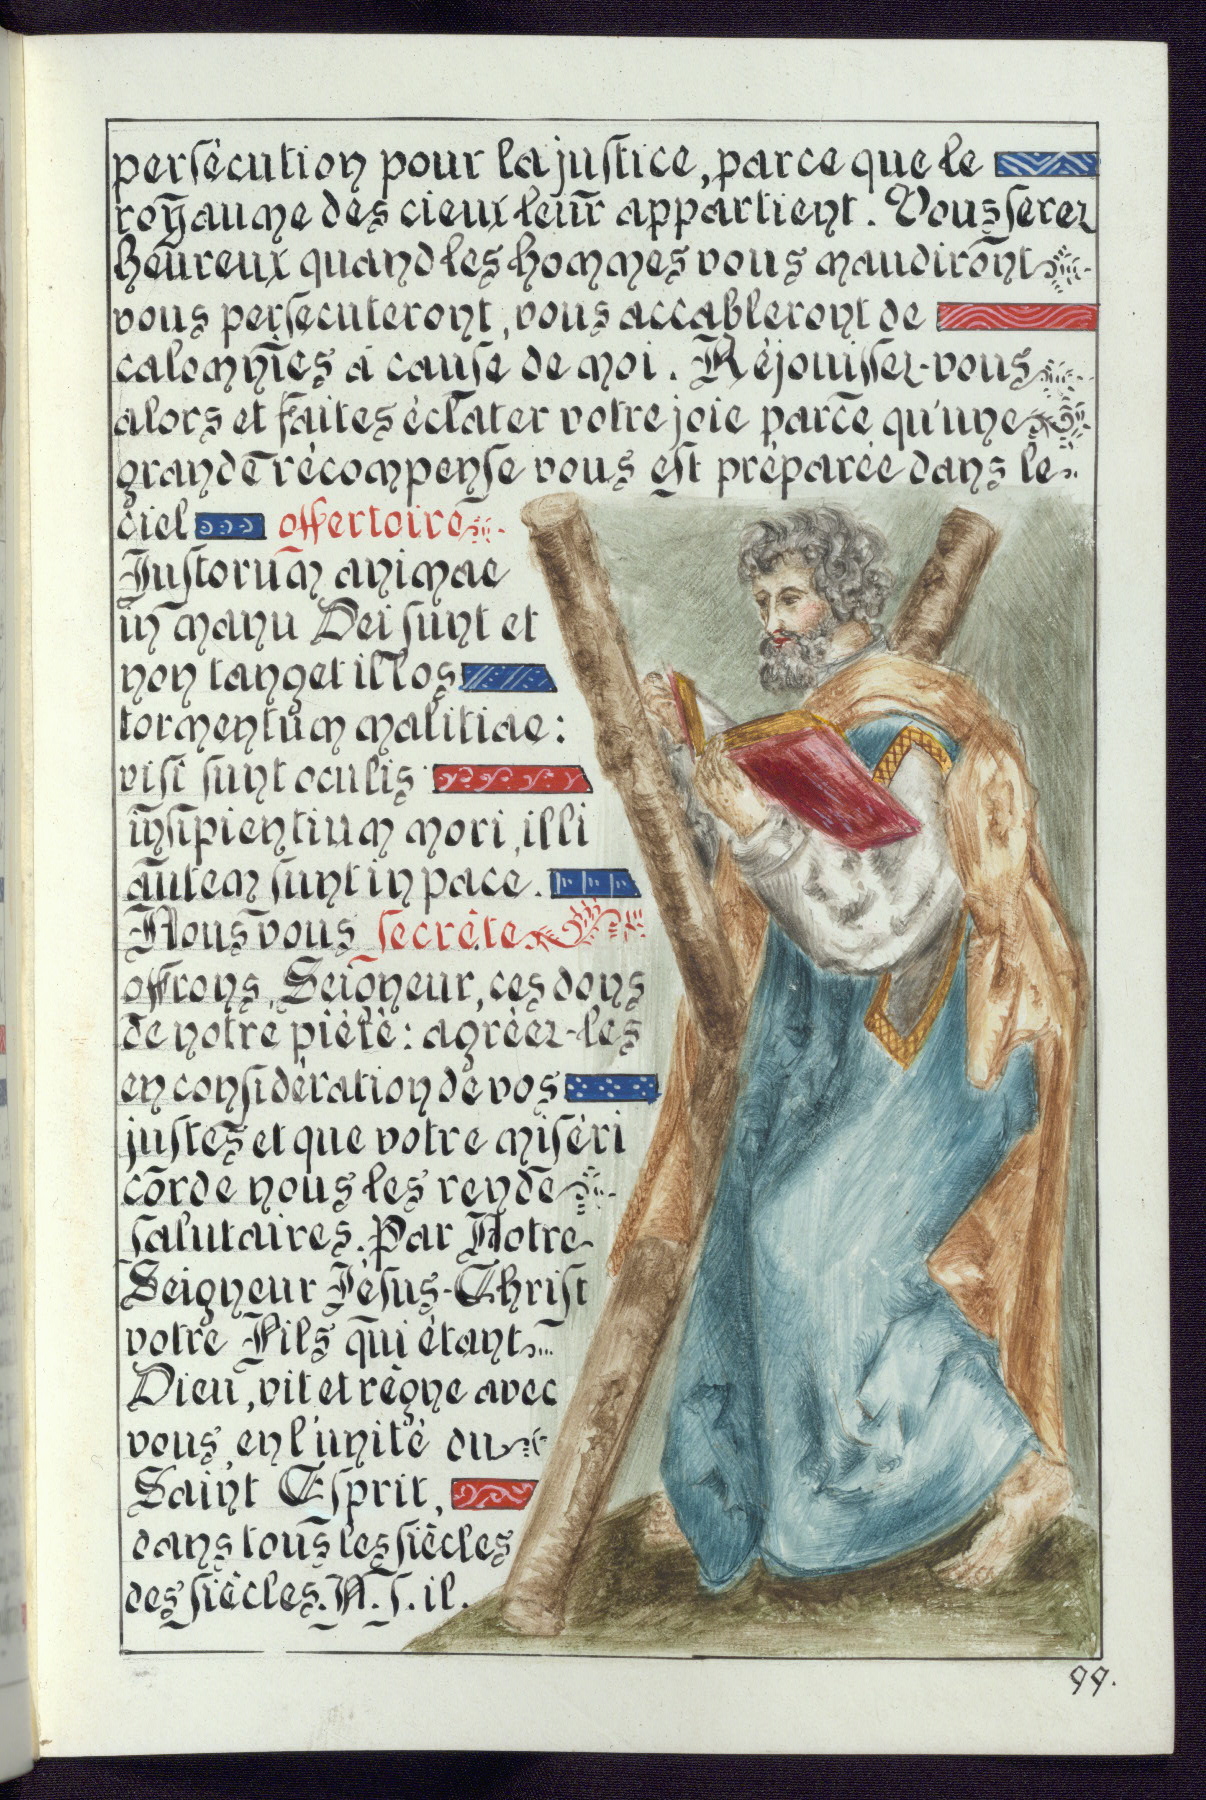 persécution pour la justice, parce que le
royaume des cieux leur appartient. Vous serez
heureux quand les hommes vous maudiront
vous persecuteront, vous accableront de
calomnies à cause de moi. Réjouissez-vous
alors et faites éclater votre joie parce qu'une
grande récompense vous est préparée dans le
ciel offertoire
Justorum animae
in manu Dei sunt et
non tanget illos
tormentum malitiae:
visi sunt oculis
insipientium mori, illi
autem sunt in pace.
Nous vous secrète
offrons, Seigneur, ces dons
de notre piété: agréez-les
en considération de vos
justes et que votre miséri
corde nous les rende
salutaires. Par Notre
Seigneur Jésus-Christ
votre Fils qui étant
Dieu, vit et règne avec
vous en l'unité du
Saint Esprit,
dans tous les siècles
des siècles. A. s. il.
99.